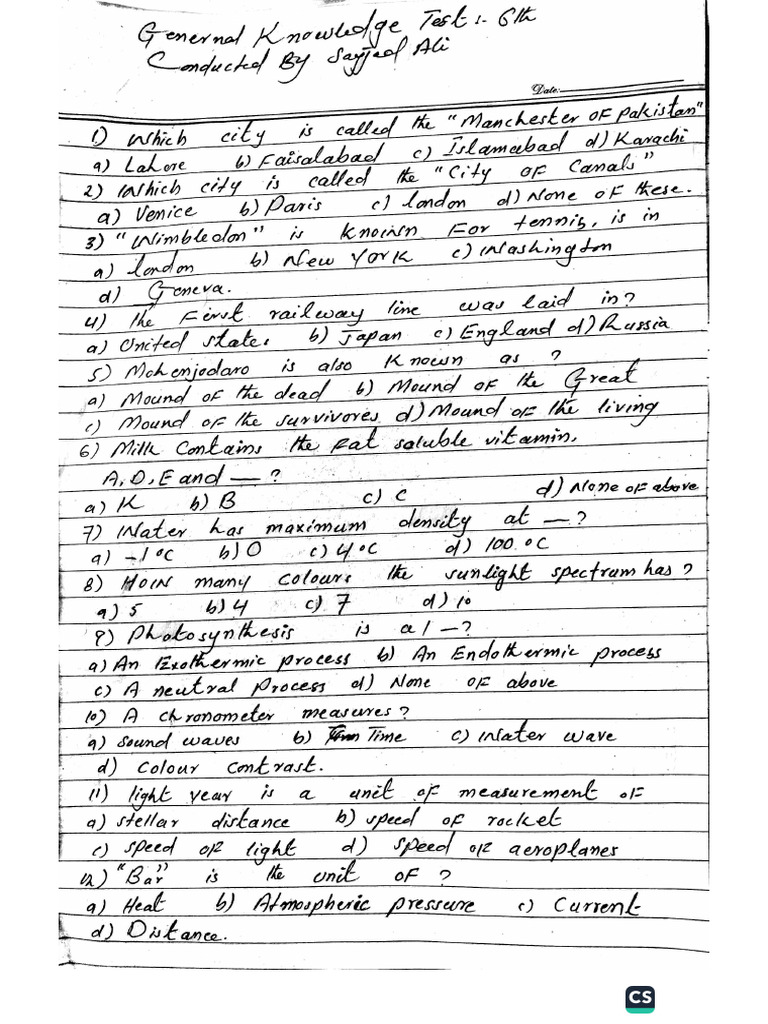 General Knowledge Test :- 6th
Conducted By Sayjad Ali
Date:
1) Which city is called the "Manchester of Pakistan"
a) Lahore b) Faisalabad c) Islamabad d) Karachi
2) Which city is called the "City of Canals"
a) Venice b) Paris c) london d) None of these.
3) "Wimbledon" is known For tennis, is in
a) london b) New York c) Washington
d) Geneva.
4) The First railway line was laid in?
a) United states b) Japan c) England d) Russia
5) Mohenjodaro is also Known as ?
a) Mound of the dead b) Mound of the Great
c) Mound of the survivores d) Mound of the living
6) Milk Contains the Fat soluble vitamin,
A, D, E and — ?
a) K b) B c) C d) None of above
7) Water has maximum density at — ?
a) -1°C b) 0 c) 4°C d) 100°C
8) How many colours the sunlight spectrum has?
a) 5 b) 4 c) 7 d) 10
9) Photosynthesis is a / — ?
a) An Exothermic process b) An Endothermic process
c) A neutral Process d) None of above
10) A chronometer measures?
a) sound waves b) Time c) Water wave
d) Colour Contrast.
11) light year is a unit of measurement of
a) stellar distance b) speed of rocket
c) speed of light d) speed of aeroplanes
12) "Bar" is the unit of ?
a) Heat b) Atmospheric pressure c) Current
d) Distance.
CS